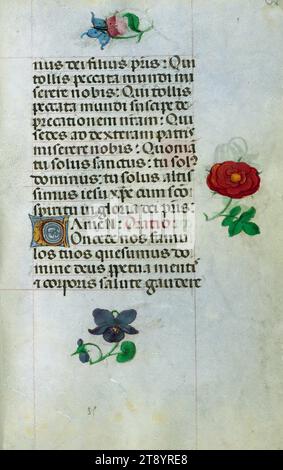 nus dei filius pris: Qui
tollis peccata mundi mi
serere nobis: Qui tollis
peccata mundi suscipe de
precationem nram: Qui
sedes ad dexteram patris
miserere nobis: Quonia
tu solus sanctus: tu sol9
dominus: tu solus altis
simus iesu xpe cum sco
spiritu in gloria dei pris:
Amen: Oratio:
Concede nos famu
los tuos quesumus do
mine deus perpetua mentis
et corporis salute gaudere
alamy
www.alamy.com
2T8YRE8